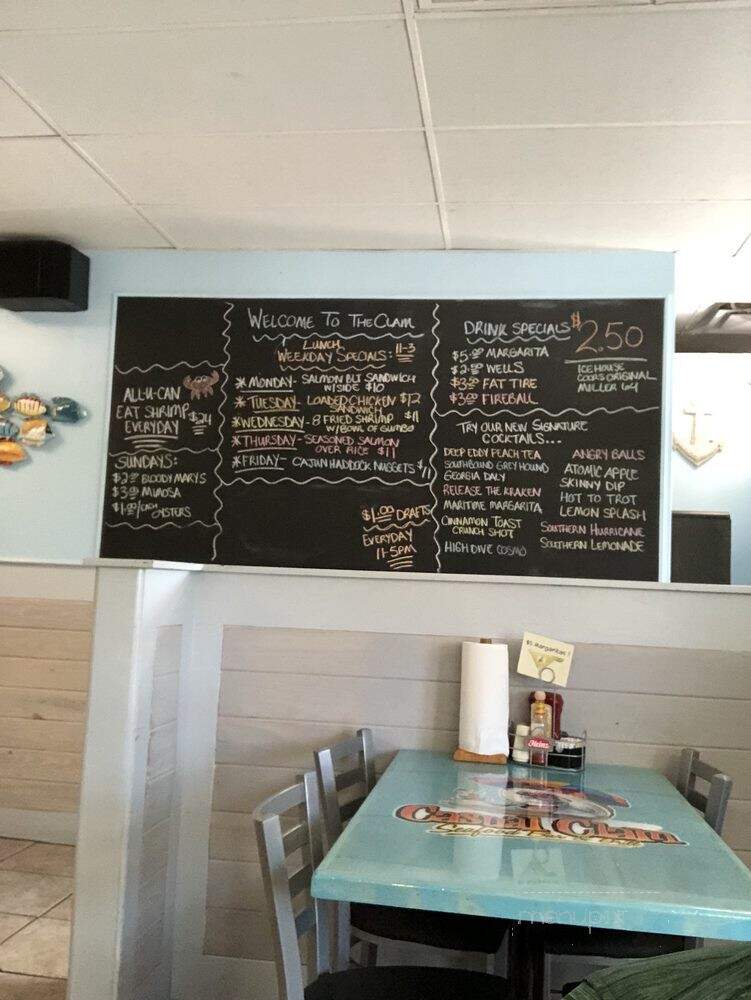 ALL-U-CAN
EAT SHRIMP
EVERYDAY $24
SUNDAYS:
$2.50 BLOODY MARYS
$3.00 MIMOSA
$1.00/EACH
OYSTERS
WELCOME TO THE CLAM
LUNCH
WEEKDAY SPECIALS: 11-3
*MONDAY- SALMON BLT SANDWICH
W/SIDE $10
*TUESDAY- LOADED CHICKEN $12
SANDWICH
*WEDNESDAY- 8 FRIED SHRIMP $11
W/BOWL OF GUMBO
*THURSDAY- SEASONED SALMON
OVER RICE $11
*FRIDAY- CAJUN HADDOCK NUGGETS $11
$1.00 DRAFTS
EVERYDAY
11-5PM
DRINK SPECIALS
$5.00 MARGARITA
$2.50 WELLS
$3.00 FAT TIRE
$3.00 FIREBALL
$2.50
ICEHOUSE
COORS ORIGINAL
MILLER 64
TRY OUR NEW SIGNATURE
COCKTAILS...
DEEP EDDY PEACH TEA
SOUTHBOUND GREYHOUND
GEORGIA DALY
RELEASE THE KRAKEN
MARITIME MARGARITA
CINNAMON TOAST
CRUNCH SHOT
HIGH DIVE COSMO
ANGRY BALLS
ATOMIC APPLE
SKINNY DIP
HOT TO TROT
LEMON SPLASH
SOUTHERN HURRICANE
SOUTHERN LEMONADE
$5 Margaritas!
Heinz
Casual Clam
menupix